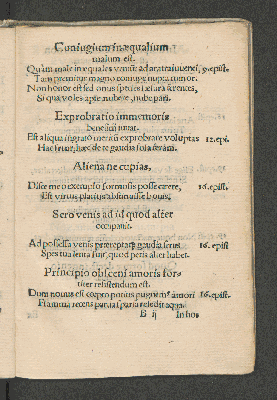 Coniugium inæqualium
malum est.
Quàm male inæquales veniūt ad aratra iuuenci, 9. epist.
Tam premitur magno coniuge nupta minor.
Non honor est sed onus species læsura ferentes,
Si qua voles apte nubere, nube pari.
Exprobratio immemoris
beneficii
Est aliqua ingrato meritū exprobrare voluptas 12. epi.
Hac fruar, hæc de te gaudia sola feram.
Aliena ne cupias,
Disce meo exemplo formosis posse carere, 16. epist.
Est virtus placitis abstinuisse bonis,
Sero venis ad id quod alter
occupauit.
Ad possessa venis præreptaq; gaudia serus 16. epist
Spes tua lenta fuit, quod petis alter habet.
Principio obsceni amoris for-
titer resistendum est.
Dum nouus est cœpto potius pugnem⁹ amori 16. epist.
Flamma recens parua sparsa resedit aqua.
B ij In hos